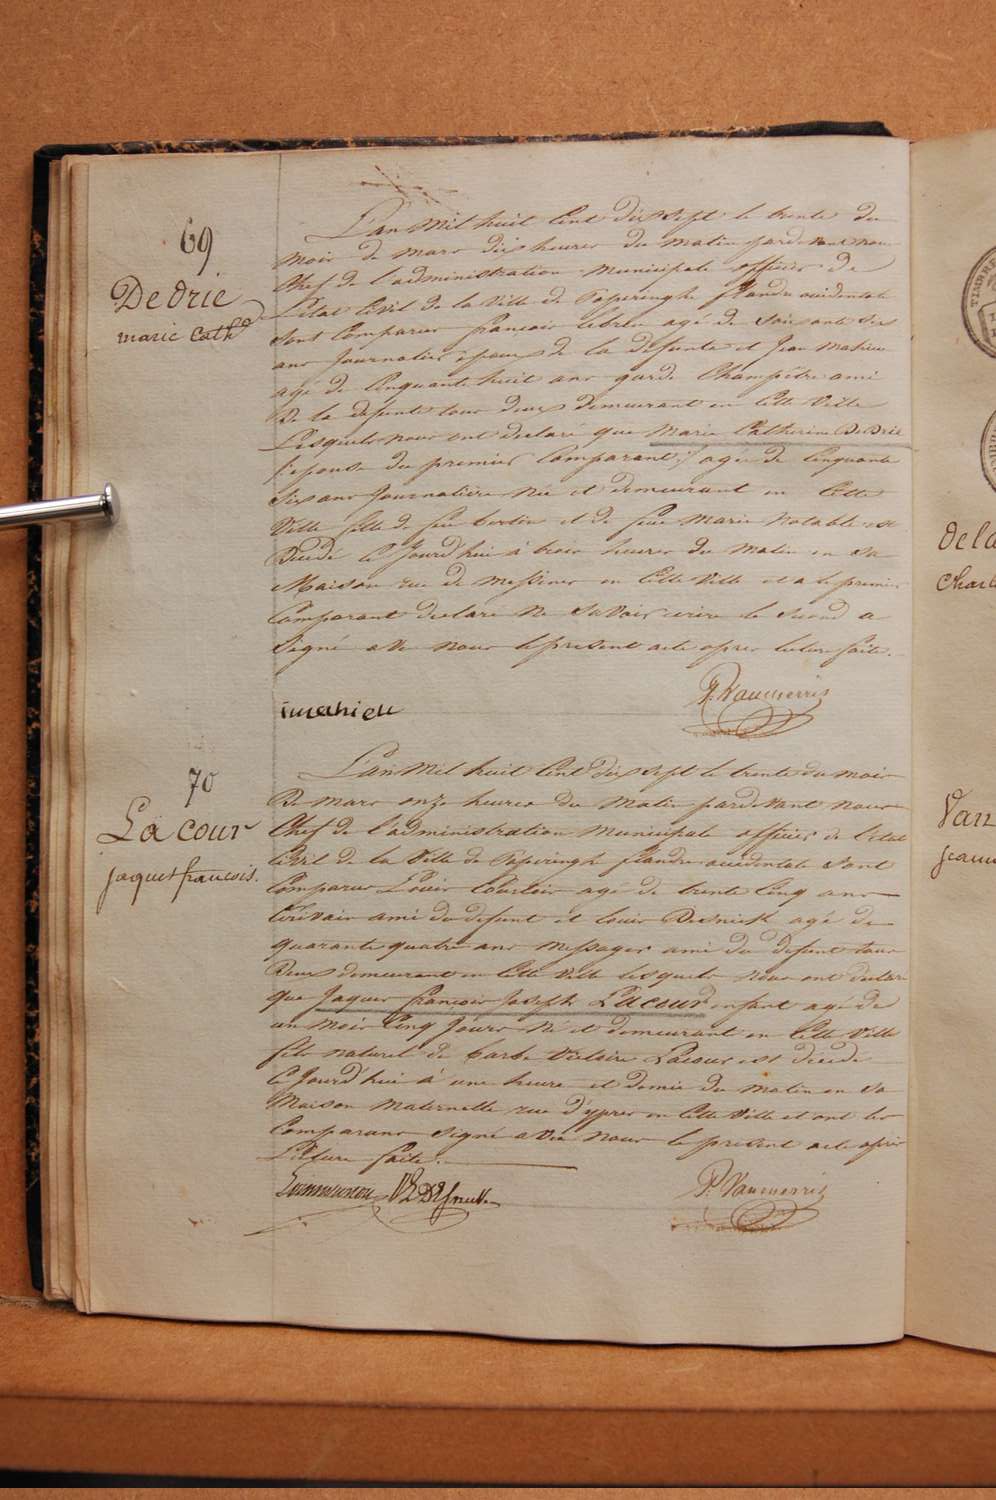 69
De Drie
marie Cathe
L'an Mil huit Cent dix Sept le trente du
mois de mars dix heures du matin pardevant nous
Chef de l'administration Municipale officier de
l'état Civil de la Ville de Poperinghe flandre occidentale
Sont Comparus francois lebrun agé de Soixante Six
ans Journalier épous de la defunte et Jean Mahieu
agé de Cinquante huit ans garde Champêtre ami
De la defunte tous deux demeurant en Cette Ville
Lesquels nous ont declaré que Marie Catherine De Drie
l'epouse du premier Comparant agée de Cinquante
Six ans Journalière Née et demeurant en Cette
Ville fille de feu bertin et de feue Marie Notable est
Decedé Ce Jourd'hui à trois heures du Matin en Sa
Maison rue de messines en Cette Ville et a le premier
Comparant declaré Ne Savoir ecrire le Second a
Signé avec nous le present acte apres lecture faite.
imahieu
P. Vanmerris
70
La cour
jaques francois.
L'an Mil huit Cent dix Sept le trente du mois
De mars onze heures du Matin pardevant nous
Chef de l'administration Municipale officier de l'etat
Civil de la Ville de Poperinghe flandre occidentale Sont
Comparus Louis agé de trente Cinq ans
Ecrivain ami du defunt et louis Desnick agé de
quarante quatre ans Messager ami du defunt tous
Deux demeurant en Cette Ville lesquels nous ont declaré
que Jaques francois Joseph Lacour enfant agé de
un mois Cinq Jours Né et demeurant en Cette Ville
fils naturel de barbe Victoire Lacour est décédé
Ce Jourd'hui à une heure et demie du matin en Sa
Maison Maternelle rue D'ypres en Cette Ville et ont les
Comparans Signé avec Nous le present acte après
Lecture faite.
P. Vanmerris
Dela
Charl
Van
jeann
TIMBRE